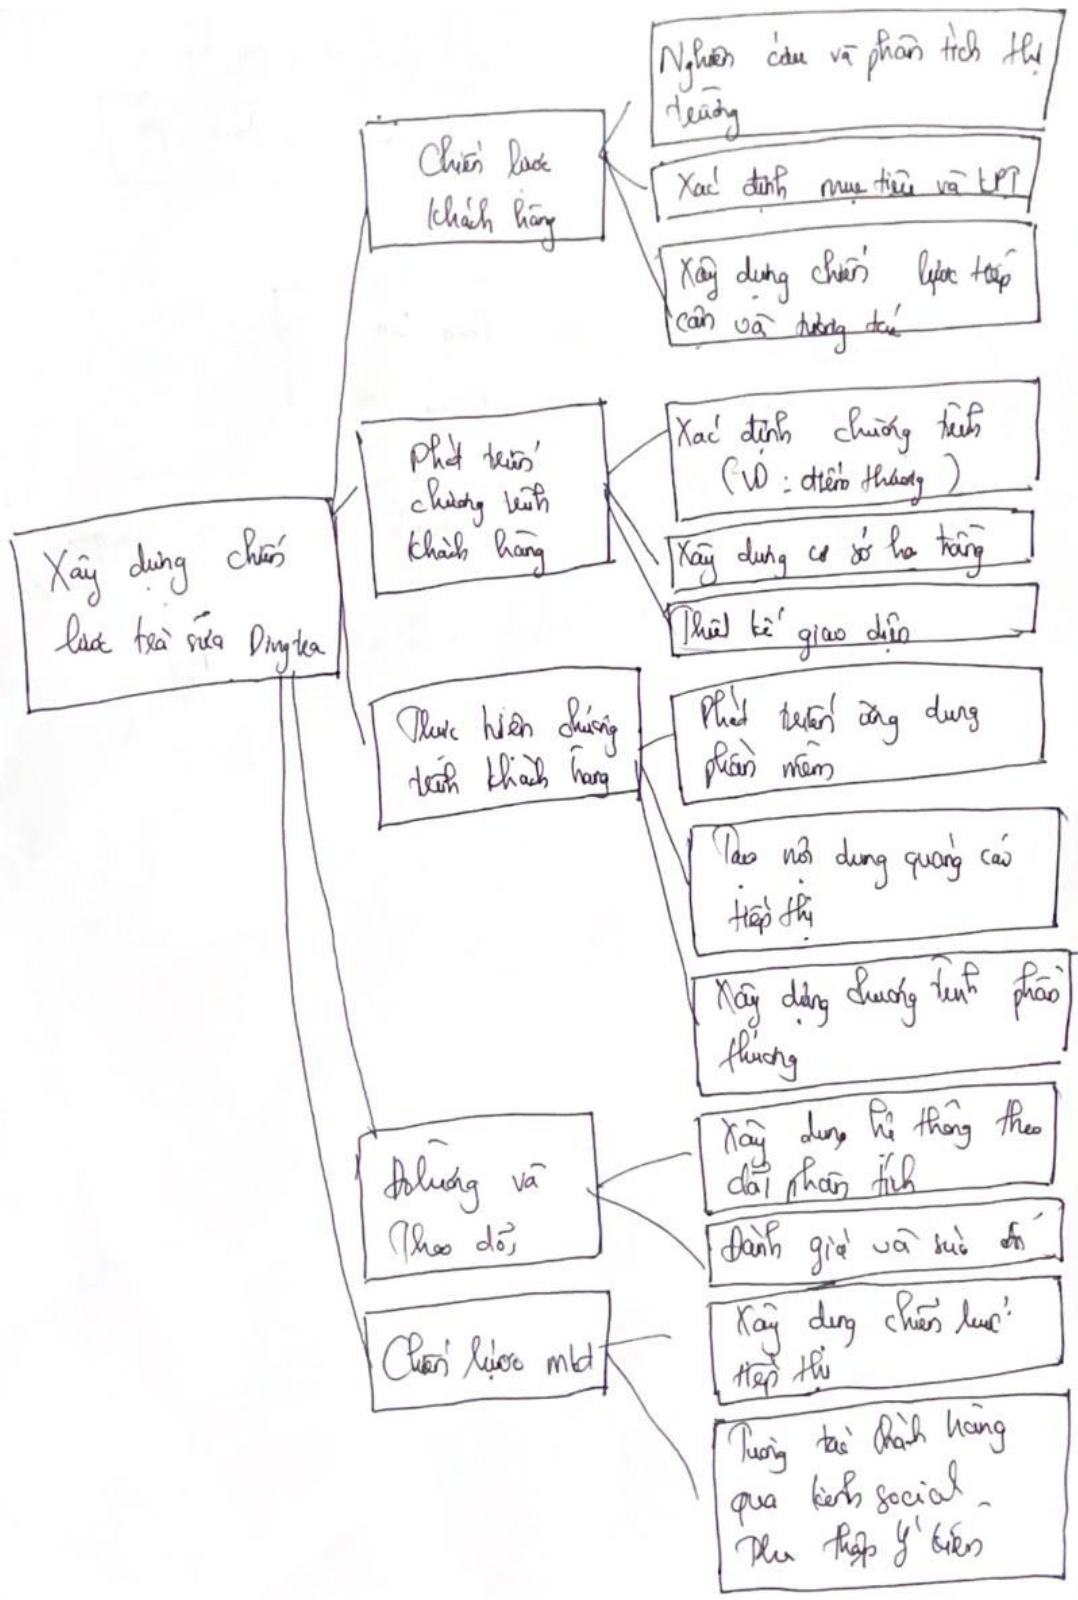 Nghiên cứu và phân tích thị
trường
Chiến lược
khách hàng
Xác định mục tiêu và KPI
Xây dựng chiến lược tiếp
cận và tương tác
Phát triển
chương trình
khách hàng
Xác định chương trình
(VD: điểm thưởng)
Xây dựng cơ sở hạ tầng
Thiết kế giao diện
Xây dựng chiến
lược trà sữa Dingtea
Thực hiện chương
trình khách hàng
Phát triển ứng dụng
phần mềm
Tạo nội dung quảng cáo
tiếp thị
Xây dựng chương trình phần
thưởng
Đo lường và
Theo dõi
Xây dựng hệ thống theo
dõi phân tích
Đánh giá và sửa
Chiến lược mkt
Xây dựng chiến lược
tiếp thị
Tương tác khách hàng
qua kênh social
Thu thập ý kiến